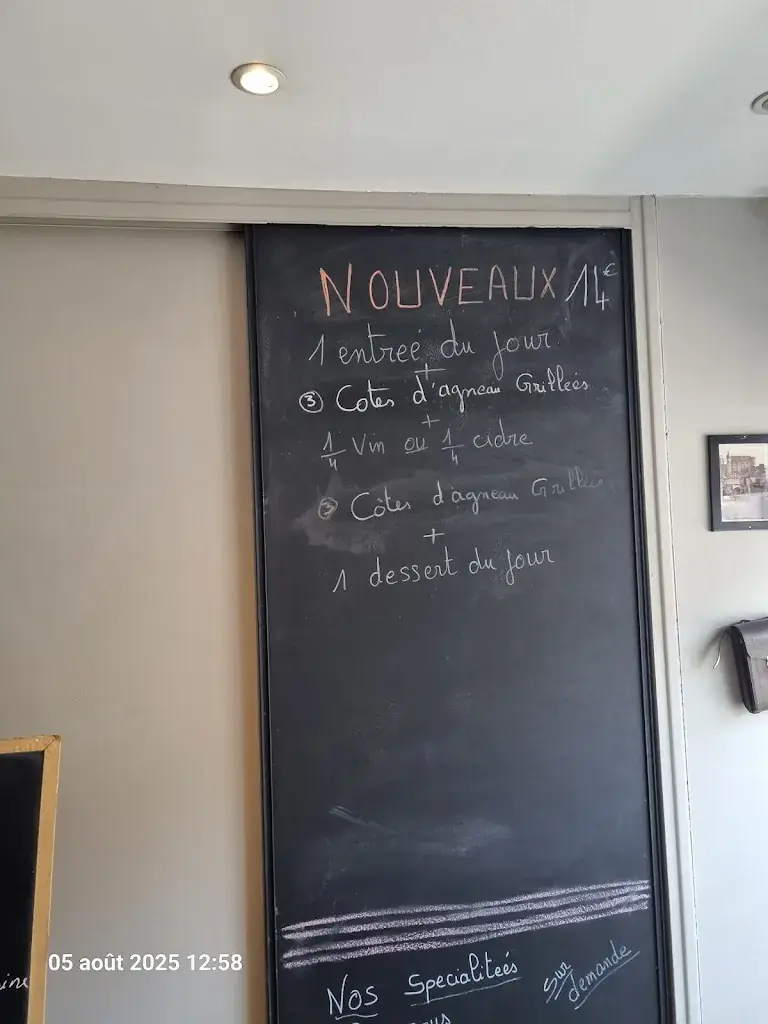 NOUVEAUX 14€
1 entreé du jour
+
③ Cotes d'agneau Grillées
+
1/4 Vin ou 1/4 cidre
③ Côtes d'agneau Grillées
+
1 dessert du jour
Nos Specialiteés
sur
demande
05 août 2025 12:58